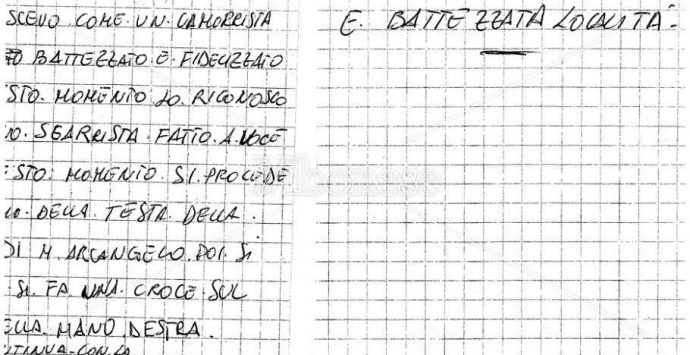 SCEVO COME. UN. CAMORRISTA
TO BATTEZZATO E. FIDELIZZATO
STO. MOMENTO LO. RICONOSCO
LO. SGARRISTA. FATTO. A VOCE
ESTO: MOMENTO. SI. PROCEDE
LO. DELLA. TESTA. DELLA.
DI M. ARCANGELO. POI. SI
. SI. FA UNA. CROCE. SUL
ELLA. MANO DESTRA.
NTINUA. CON. LA
E. BATTEZZATA LOCALITA-
Vibonese